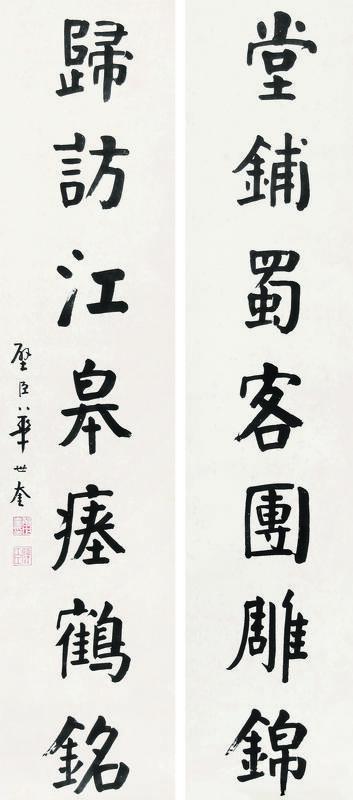 堂鋪蜀客團雕錦
歸訪江皋瘞鶴銘
璧臣華世奎